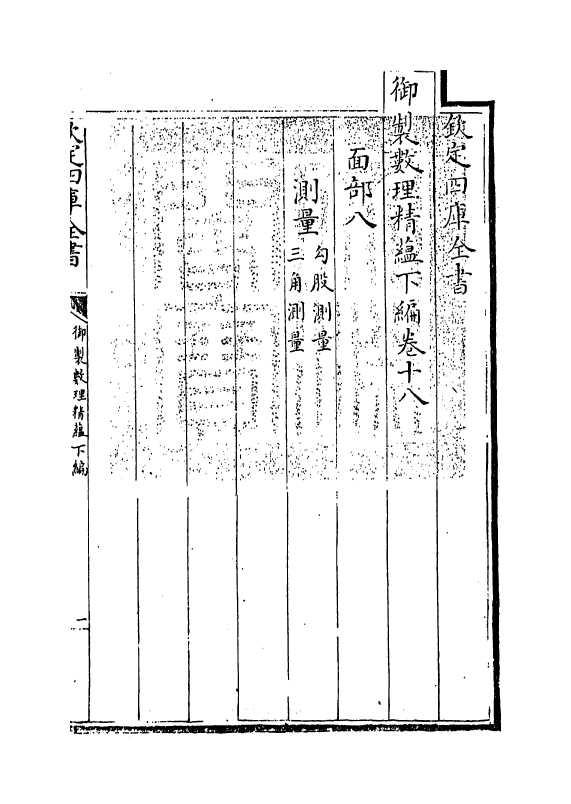 欽定四庫全書
御製數理精蘊下編卷十八
面部八
測量
勾股測量
三角測量
欽定四庫全書
御製數理精蘊下編
一